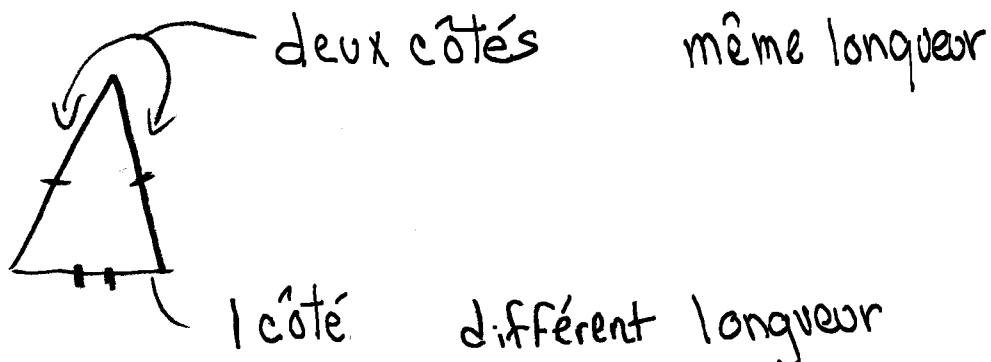 deux côtés même longueur
1 côté différent longueur